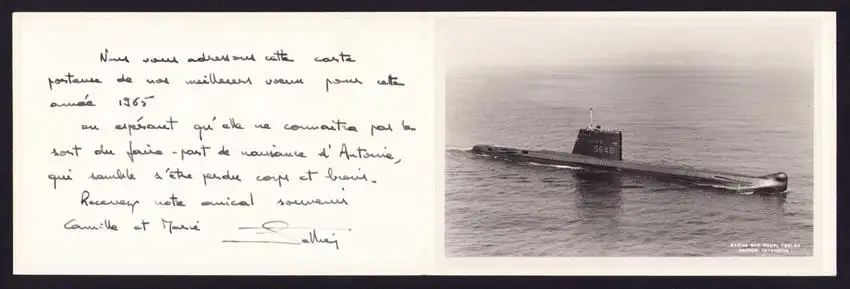 Nous vous adressons cette carte
porteuse de nos meilleurs voeux pour cette
année 1965
en espérant qu'elle ne connaitra pas le
sort du faire-part de naissance d'Antoine,
qui semble s'être perdu corps et biens.
Recevez notre amical souvenir
Camille et Marie
S648
MARIUS BAR PHOT, TOULON